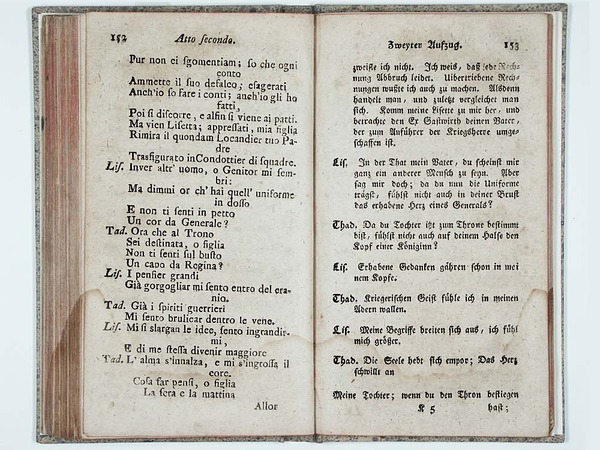 152
Atto secondo.
Pur non ci sgomentiam; so che ogni
conto
Ammette il suo defalco; esagerati
Anch'io so fare i conti; anch'io gli ho
fatti,
Poi si discorre, e alfin si viene ai patti.
Ma vien Lisetta; appressati, mia figlia
Rimira il quondam Locandier tuo Pa-
dre
Trasfigurato in Condottier di squadre.
Lis. Inver altr' uomo, o Genitor mi sem-
bri:
Ma dimmi or ch' hai quell' uniforme
in dosso
E non ti senti in petto
Un cor da Generale?
Tad. Ora che al Trono
Sei destinata, o figlia
Non ti senti sul busto
Un capo da Regina?
Lis. I pensier grandi
Già gorgogliar mi sento entro del cra-
nio.
Tad. Già i spiriti guerrieri
Mi sento brulicar dentro le vene.
Lis. Mi si slargan le idee, sento ingrandir-
mi,
E di me stessa divenir maggiore
Tad. L' alma s'innalza, e mi s'ingrossa il
core.
Cosa far pensi, o figlia
La sera e la mattina
Allor
Zweyter Aufzug.
153
zweifle ich nicht. Ich weis, daß jede Rech-
nung Abbruch leidet. Uibertriebene Rech-
nungen wußte ich auch zu machen. Alsdenn
handelt man, und zuletzt vergleichet man
sich. Komm meine Lisette zu mir her, und
betrachte den Ex Gastwirth deinen Vater,
der zum Anführer der Kriegsheere umge-
schaffen ist.
Lis. In der That mein Vater, du scheinst mir
ganz ein anderer Mensch zu seyn. Aber
sag mir doch; da du nun die Uniforme
trägst, fühlst nicht auch in deiner Brust
das erhabene Herz eines Generals?
Thad. Da du Tochter itzt zum Throne bestimmt
bist, fühlst nicht auch auf deinem Halse den
Kopf einer Königinn?
Lis. Erhabene Gedanken gähren schon in mei
nem Kopfe.
Thad. Kriegerischen Geist fühle ich in meinen
Adern wallen.
Lis. Meine Begriffe breiten sich aus, ich fühl
mich größer.
Thad. Die Seele hebt sich empor; Das Herz
schwillt an
Meine Tochter; wenn du den Thron bestiegen
K 5
hast;